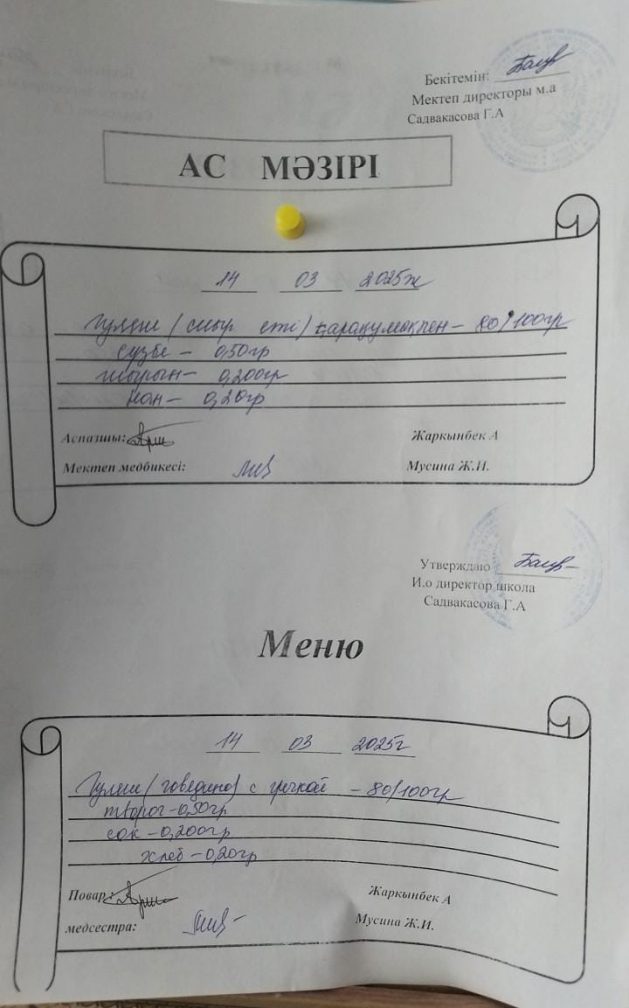 Бекітемін:
Мектеп директоры м.а
Садвакасова Г.А
АС МӘЗІРІ
14 03 2025ж
Гуляш (сиыр еті) қарақұмықпен - 80/100гр
сүзбе - 0,50гр
шырын - 0,200гр
нан - 0,20гр
Аспазшы: Жаркынбек А
Мектеп медбикесі: Мусина Ж.И.
Утверждаю
И.о директор школа
Садвакасова Г.А
Меню
14 03 2025г
Гуляш (говядина) с гречкой - 80/100гр
творог - 0,50гр
сок - 0,200гр
хлеб - 0,20гр
Повар: Жаркынбек А
медсестра: Мусина Ж.И.